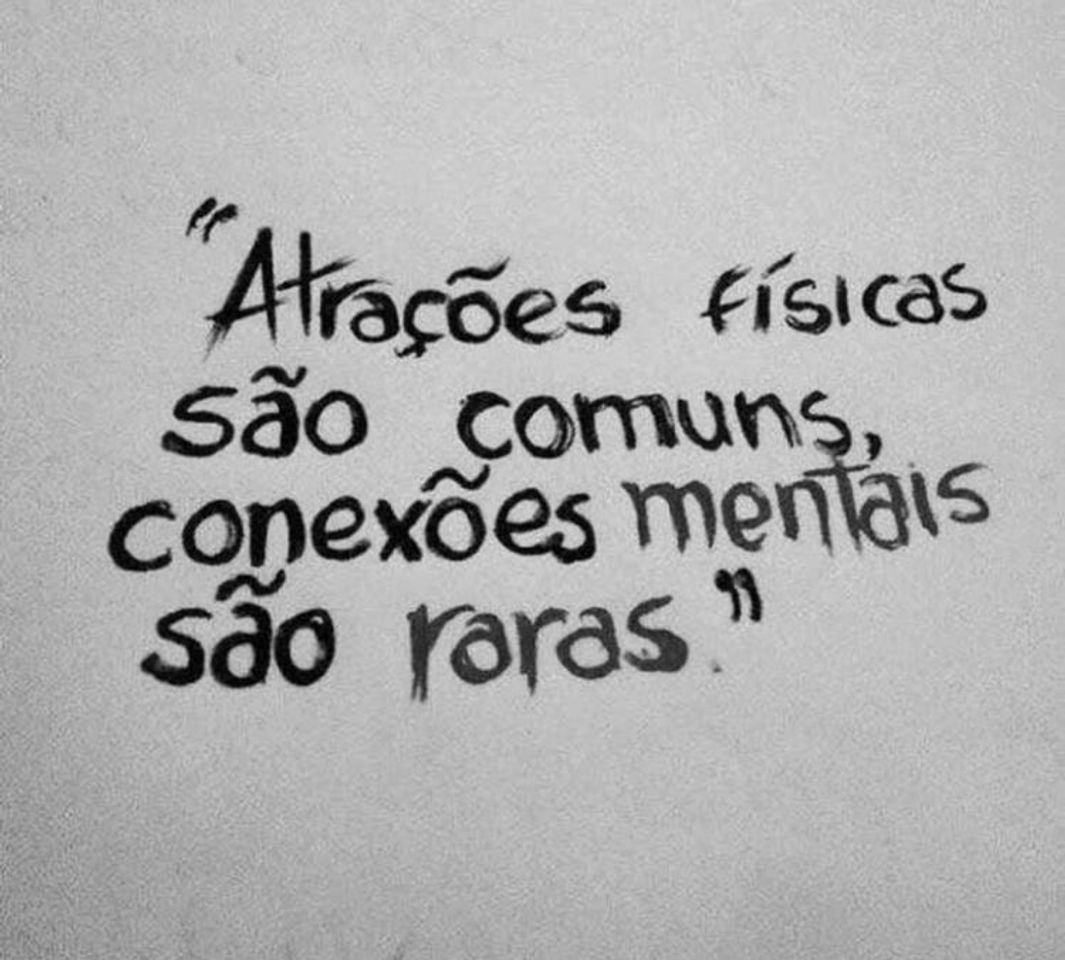 "Atrações físicas
são comuns,
conexões mentais
são raras."